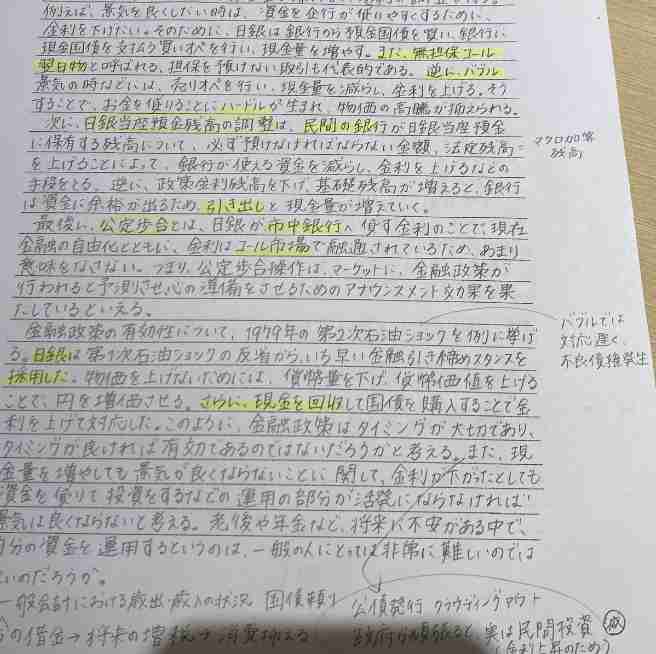 例えば、景気を良くしたい時は、資金を企業が借りやすくするために、
金利を下げたい。そのために、日銀は銀行から預金国債を買い、銀行に
現金国債を支払う買いオペを行い、現金量を増やす。また、無担保コール
翌日物と呼ばれる、担保を預けない取引も代表的である。逆に、バブル
景気の時などには、売りオペを行い、現金量を減らし、金利を上げる。そう
することで、お金を借りることにハードルが生まれ、物価の高騰が抑えられる。
次に、日銀当座預金残高の調整は、民間の銀行が日銀当座預金
に保有する残高について、必ず預けなければならない金額、法定残高=
を上げることによって、銀行が使える資金を減らし、金利を上げるなどの
手段をとる。逆に、政策金利残高を下げ、基礎残高が増えると、銀行
は資金に余裕が出るため、引き出しと現金量が増えていく。
マクロ加算
残高
最後に、公定歩合とは、日銀が市中銀行へ貸す金利のことで、現在
金融の自由化とともに、金利はコール市場で融通されているため、あまり
意味をなさない。つまり、公定歩合操作は、マーケットに、金融政策が
行われると予測させ心の準備をさせるためのアナウンスメント効果を果
たしているといえる。
金融政策の有効性について、1979年の第2次石油ショックを例に挙げ
る。日銀は第1次石油ショックの反省から、いち早い金融引き締めスタンスを
採用した。物価を上げないためには、貨幣量を下げ、貨幣価値を上げる
ことで、円を増価させる。さらに、現金を回収して国債を購入することで金
利を上げて対応した。このように、金融政策はタイミングが大切であり、
タイミングが良ければ有効であるのではないだろうかと考える。また、現
金量を増やしても景気が良くならないことに関して、金利が下がったとしても
資金を借りて投資をするなどの運用の部分が活発にならなければ
景気は良くならないと考える。老後や年金など、将来に不安がある中で、
自分の資金を運用するというのは、一般の人にとっては非常に難しいのでは
ないのだろうか。
バブルでは
対応遅く、
不良債権発生
一般会計における歳出・歳入の状況 国債頼り
の借金→将来の増税→消費抑える
公債発行 クラウディングアウト
政府が頑張ると、実は民間投資 減
(金利上昇のため)